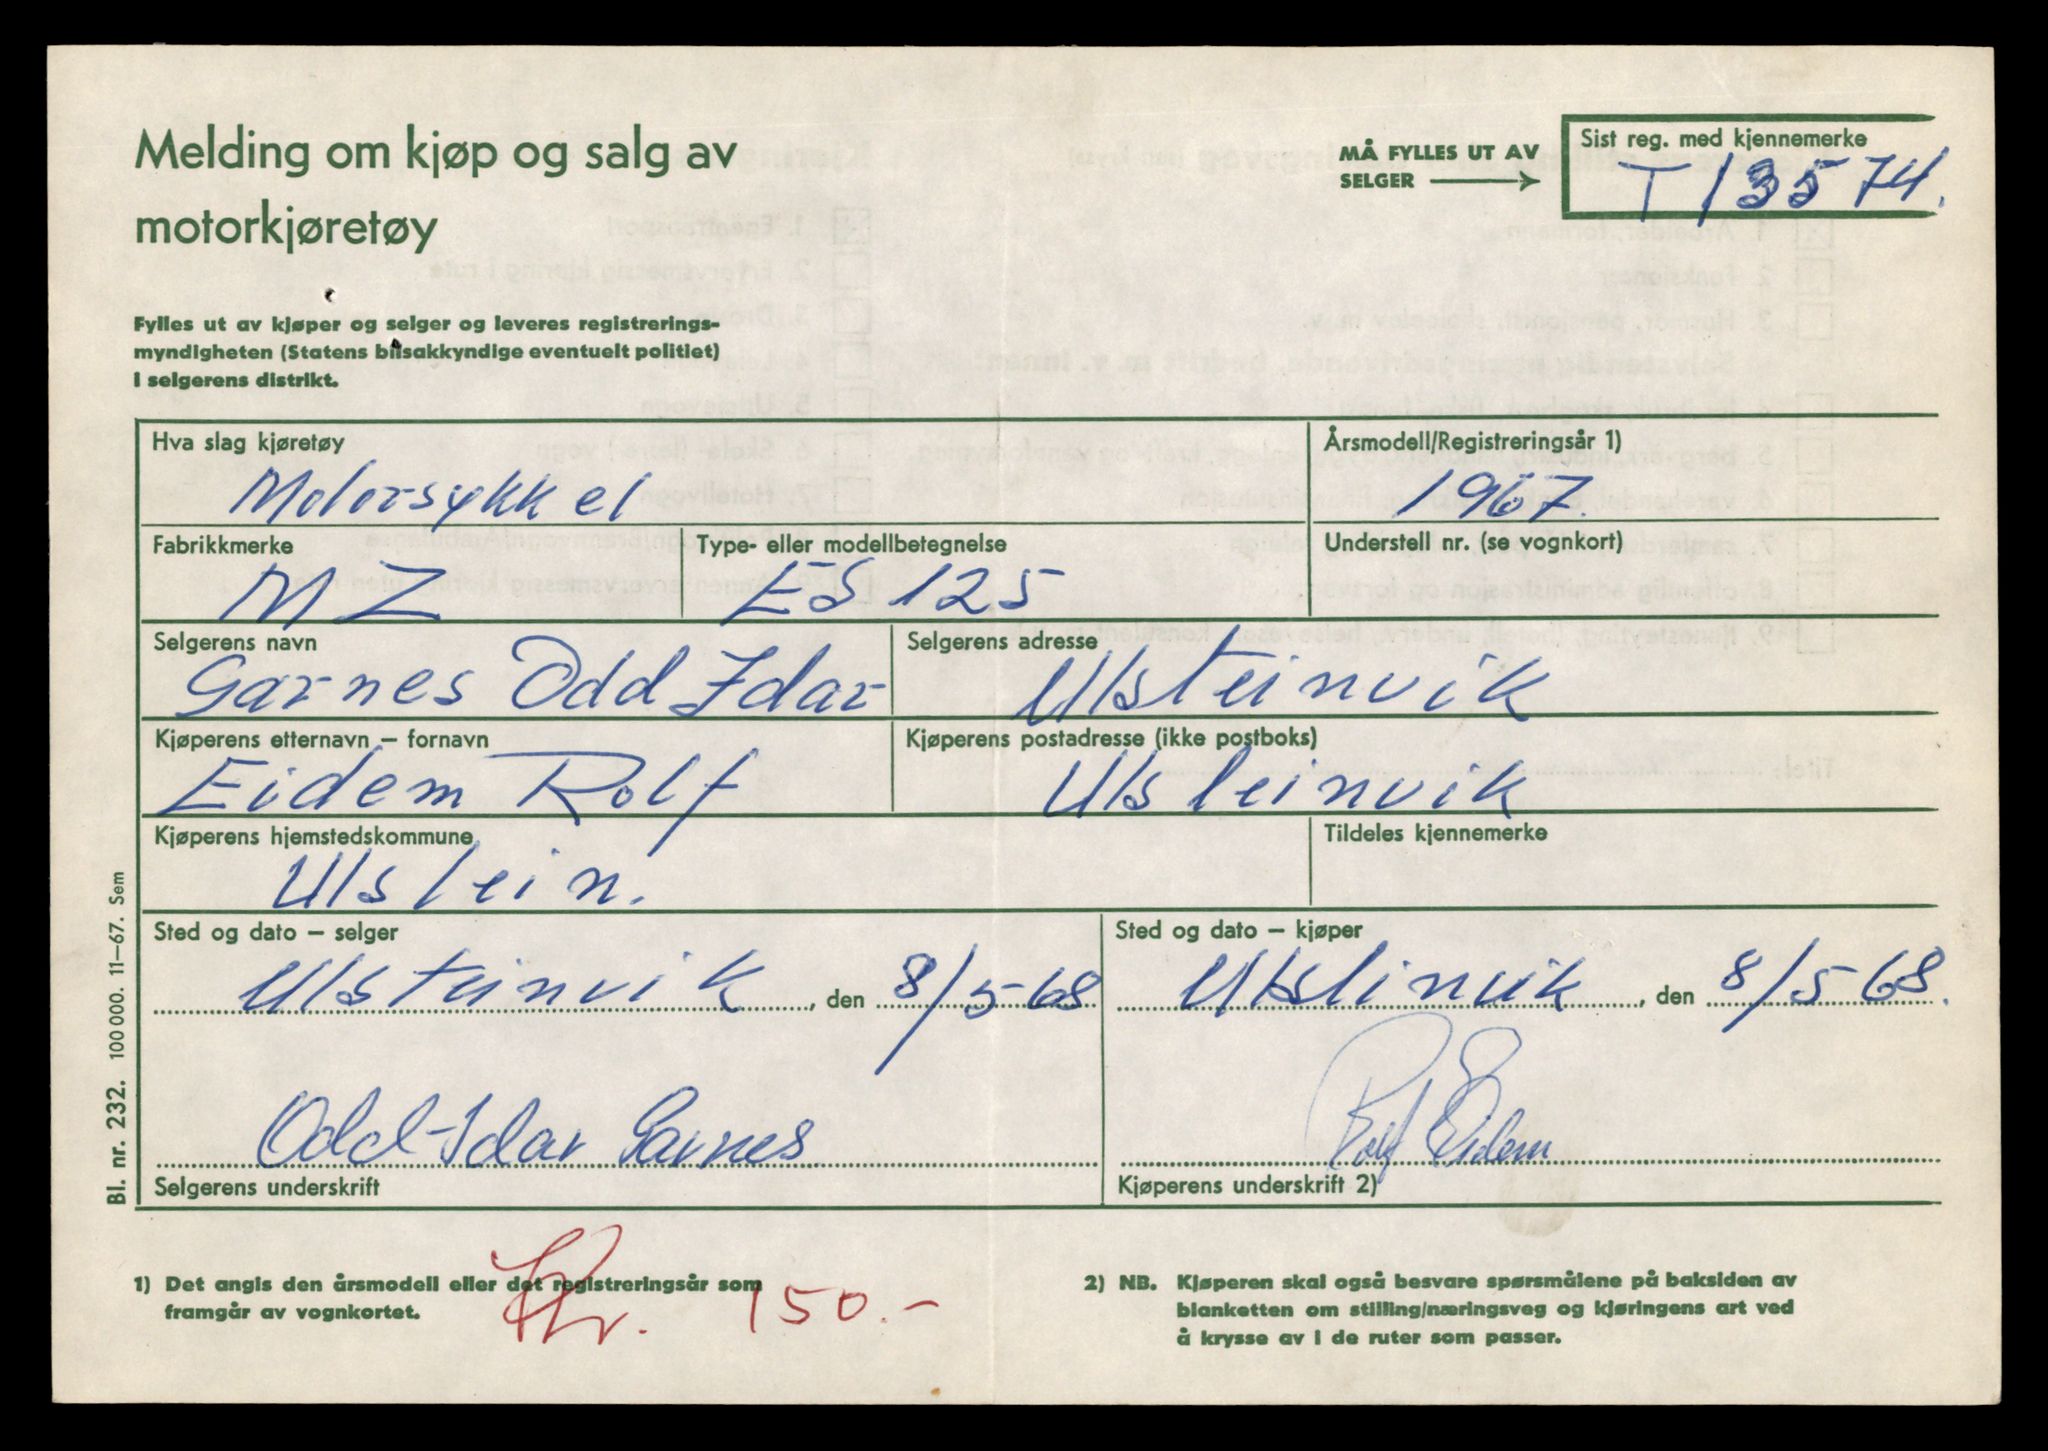 Melding om kjøp og salg av
motorkjøretøy
MÅ FYLLES UT AV
SELGER
Sist reg. med kjennemerke
T 13574.
Fylles ut av kjøper og selger og leveres registrerings-
myndigheten (Statens bilsakkyndige eventuelt politiet)
i selgerens distrikt.
Hva slag kjøretøy
Motorsykkel
Årsmodell/Registreringsår 1)
1967.
Fabrikkmerke
MZ
Type- eller modellbetegnelse
ES 125
Understell nr. (se vognkort)
Selgerens navn
Garnes Odd Idar
Selgerens adresse
Ulsteinvik
Kjøperens etternavn – fornavn
Eidem Rolf
Kjøperens postadresse (ikke postboks)
Ulsteinvik
Kjøperens hjemstedskommune
Ulstein.
Tildeles kjennemerke
Sted og dato – selger
Ulsteinvik, den 8/5-68
Sted og dato – kjøper
Ulsteinvik, den 8/5-68.
Odd-Idar Garnes
Selgerens underskrift
Rolf Eidem
Kjøperens underskrift 2)
Bl. nr. 232. 100 000. 11–67. Sem
1) Det angis den årsmodell eller det registreringsår som
framgår av vognkortet.
Kr. 150.-
2) NB. Kjøperen skal også besvare spørsmålene på baksiden av
blanketten om stilling/næringsveg og kjøringens art ved
å krysse av i de ruter som passer.